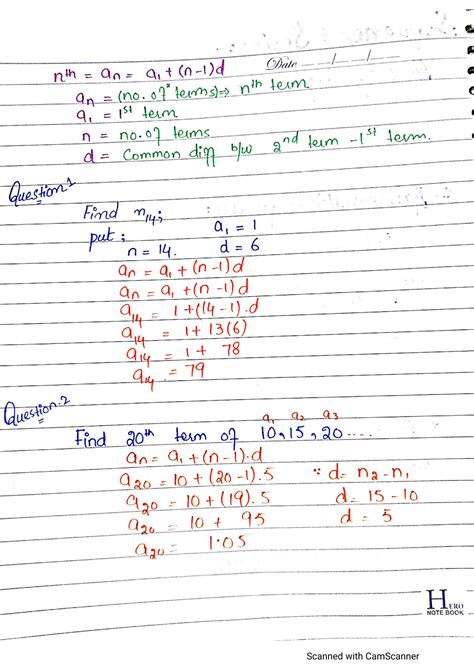 Date __/__/__
nth = an = a1 + (n-1)d
an = (no. of terms) ⇒ nth term
a1 = 1st term
n = no. of terms
d = Common diff b/w 2nd term - 1st term.
Question 1
Find n14;
put; a1 = 1
n = 14. d = 6
an = a1 + (n-1)d
an = a1 + (n-1)d
a14 = 1+(14-1).d
a14 = 1+13(6)
a14 = 1+ 78
a14. = 79
Question.2
a1 a2 a3
Find 20th term of 10,15,20....
an = a1 + (n-1).d
a20 = 10+(20-1).5 ∵ d= n2-n1
a20 = 10+(19).5 d= 15-10
a20 = 10 + 95 d = 5
a20 = 1.05
HERO
NOTE BOOK
Scanned with CamScanner